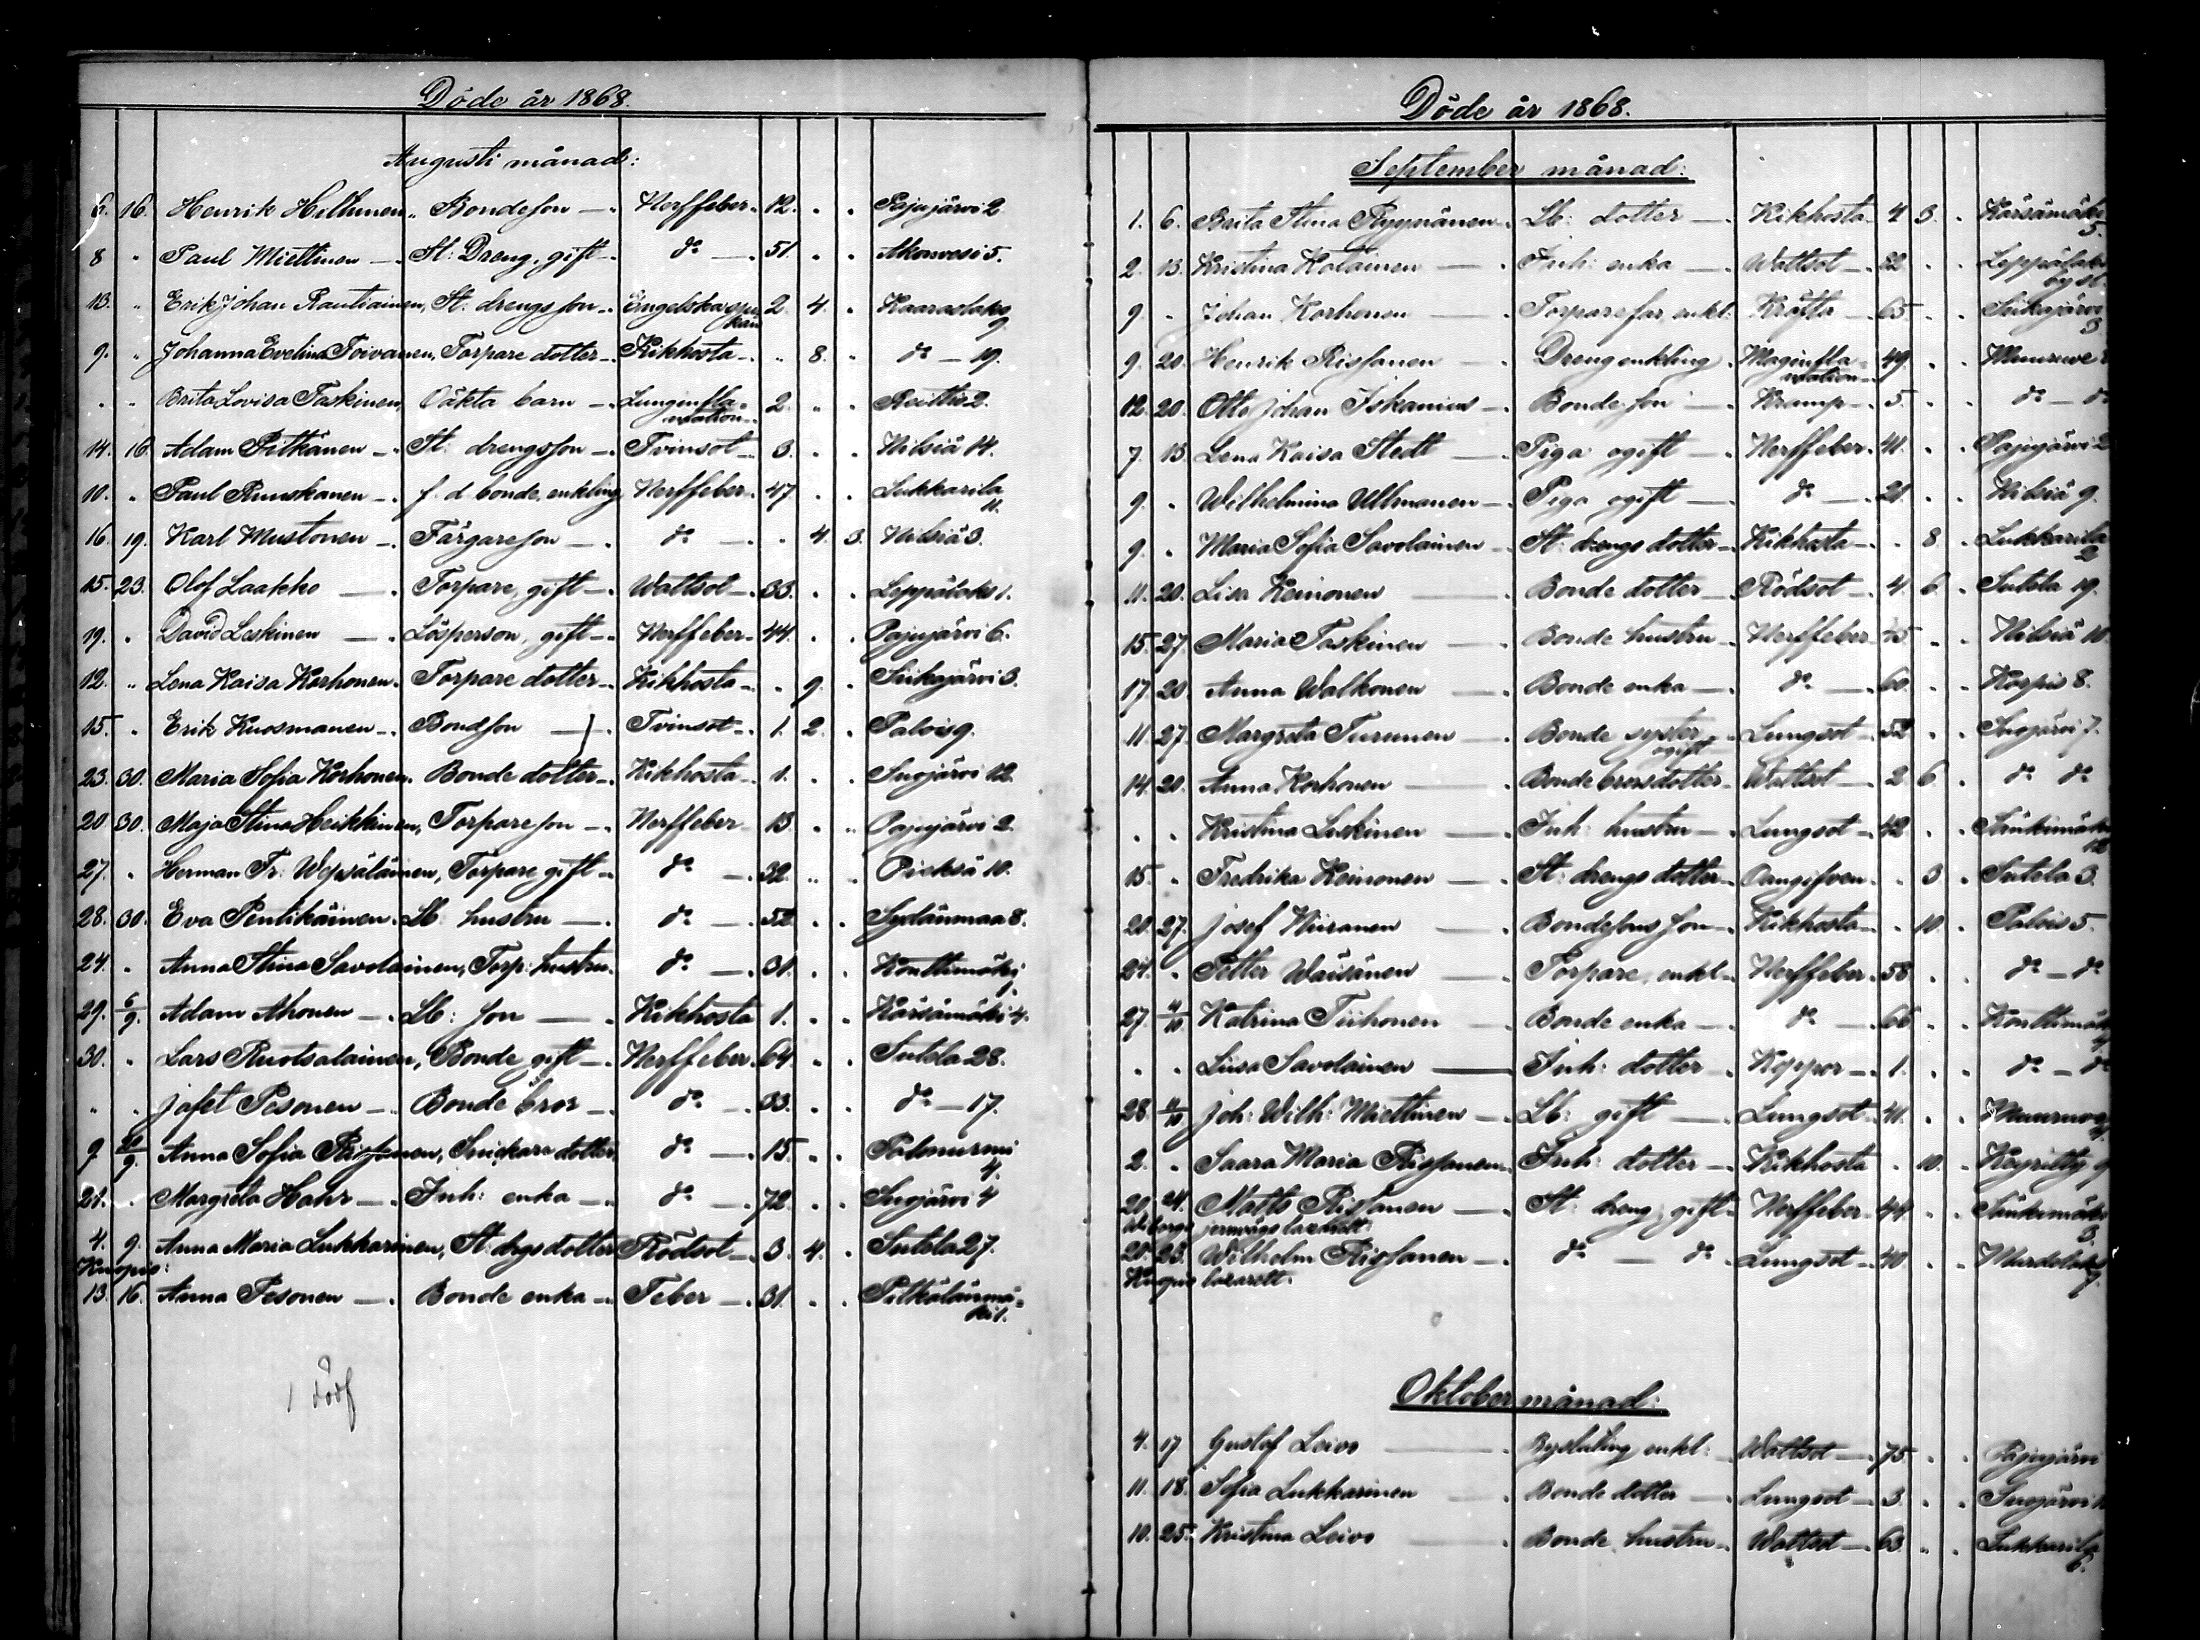 Döde år 1868.
Augusti månad:
6. 16. Henrik Hilthunen.. Bondeson — Nerffeber. 12. . . Pajujärvi 2
8 " Paul Miettinen — St: Dreng, gift — do — 51. . . Akonvesi 5.
13. " Erik Johan Rautiainen, St. drengsson — Engelska sju= 2. 4. . Kaaraslaks
kan 9
9. " Johanna Evelina Toivanen, Torpare dotter — Kikhosta — " 8. . do — 19.
. . Brita Lovisa Taskinen, Oäkta barn — Lunginfla= 2. . . Reittiö 2.
mation
14. 16. Adam Pitkänen — St: drengsson — Tvinsot — 3. . . Nilsiä 14.
10. . Paul Ruuskanen — f. d. bonde, enkling Nerffeber. 47 . . Lukkarila
11.
16. 19. Karl Mustonen — Färgareson — do — . 4. 3. Nilsiä 3.
15. 23. Olof Laakko — Torpare, gift — Wattsot — 33. . . Leppälaks 1.
19. . David Leskinen — Lösperson, gift — Nerffeber — 44. . . Pajujärvi 6.
12. .. Lena Kaisa Korhonen. Torpare dotter — Kikhosta — . 9. . Siikajärvi 3.
15. . Erik Kuosmanen — Bondson — Tvinsot — 1. 2. . Palois 9.
23. 30. Maria Sofia Korhonen. Bonde dotter — Kikhosta — 1. . . Suojärvi 12.
20 30. Maja Stina Heikkinen, Torpareson — Nerffeber — 13. . . Pajujärvi 2.
27. . Herman Fr: Wepsäläinen, Torpare gift — do — 32. . . Pieksä 10.
28. 30. Eva Pentikäinen. Lb: hustru — do — 52. . . Sydänmaa 8.
24. . Anna Stina Savolainen, Torp: hustru. do — 31. . . Konttimäki
29. 6/9. Adam Ahonen — Lb: son — Kikhosta 1. . . Kärsämäki 4.
30. . Lars Ruotsalainen, Bonde, gift — Nerffeber. 64. . . Sutela 28.
. . Jafet Pesonen — Bonde bror — do — 33. . . do — 17.
9 20/9. Anna Sofia Rissanen, Snickare dotter do — 15. . . Palonurmi
4.
21. . Margreta Hahr — Inh: enka — do — 72. . . Suojärvi 4
4. 9. Anna Maria Lukkarinen, St: drgs dotter Rödsot — 3. 4. . Sutela 27.
Kuopio:
13. 16. Anna Pesonen — Bonde enka — Feber — 31. . . Pitkälänmä=
ki 1.
1 född
Döde år 1868.
September månad:
1. 6. Brita Stina Ryynänen — Lb: dotter — Kikhosta — 4 3. . Kärsämäki
5.
2. 13. Kristina Kolainen — Inh: enka — Wattsot — 82 . . Leppälaks
9 . Johan Korhonen — Torparefar, enkl: Kräfta — 65 . . Siikajärvi
3
9. 20. Henrik Rissanen — Dreng enkling Maginfla= 49. . . Muuruve
mation
12. 20. Otto Johan Iskanius — Bondeson — Kramp — 5. . . do — do
7. 13. Lena Kaisa Stedt — Piga ogift — Nerffeber. 41. . . Pajujärvi 2
9. . Wilhelmina Ullmanen — Piga ogift — do — 21. . . Nilsiä 9.
9. . Maria Sofia Savolainen St: drengs dotter — Kikhosta — . 8. . Lukkarila
2
11. 20. Lisa Keinonen — Bonde dotter — Rödsot — 4. 6. . Sutela 19.
15. 27. Maria Taskinen — Bonde hustru — Nerffeber 45 . . Nilsiä 10
17. 20 Anna Walkonen — Bonde enka — do — 60. . . Korpis 8.
11. 27. Margreta Turunen — Bonde syster Lungsot — 52 . . Suojärvi 7.
ogift
14. 20. Anna Korhonen — Bonde brorsdotter — Wattsot — 2 6. . do do
. . Kristina Leskinen — Inh: hustru — Lungsot — 42 . . Sänkimäki
15. . Fredrika Keinonen — St: drengs dotter — Oangifven . 3 . Sutela 3.
20. 27. Josef Niiranen — Bondesons son — Kikhosta — . 10. . Palois 5.
21. . Petter Wäisänen — Torpare, enkl — Nerffeber. 58 . . do — do
27. 4/10 Katrina Tiihonen — Bonde enka — do — 66 . . Konttimäki
4
. . Liisa Savolainen — Inh: dotter — Koppor — 1. . . do — do
28. 4/10 Joh: Wilh: Miettinen — Lb: gift — Lungsot — 41. . . Muuruve
2. . Saara Maria Rissanen Inh: dotter — Kikhosta . 10. . Keyritty 9
20. 24. Matts Rissanen — St: dreng, gift — Nerffeber — 44 . . Sänkimäki
Wiborgs jernvägs lazarett. 3.
20. 23. Wilhelm Rissanen — do — do Lungsot — 40. . . Murdolaks
Kuopio lazarett. 7.
Oktober månad:
4. 17 Gustof Leivo — Bystating enkl: Wattsot — 75 . . Pajujärvi
11. 18. Sofia Lukkarinen — Bonde dotter — Lungsot — 3. . . Suojärvi
10. 25. Kristina Leivo — Bonde hustru — Wattsot — 63 . . Lukkarila
6.